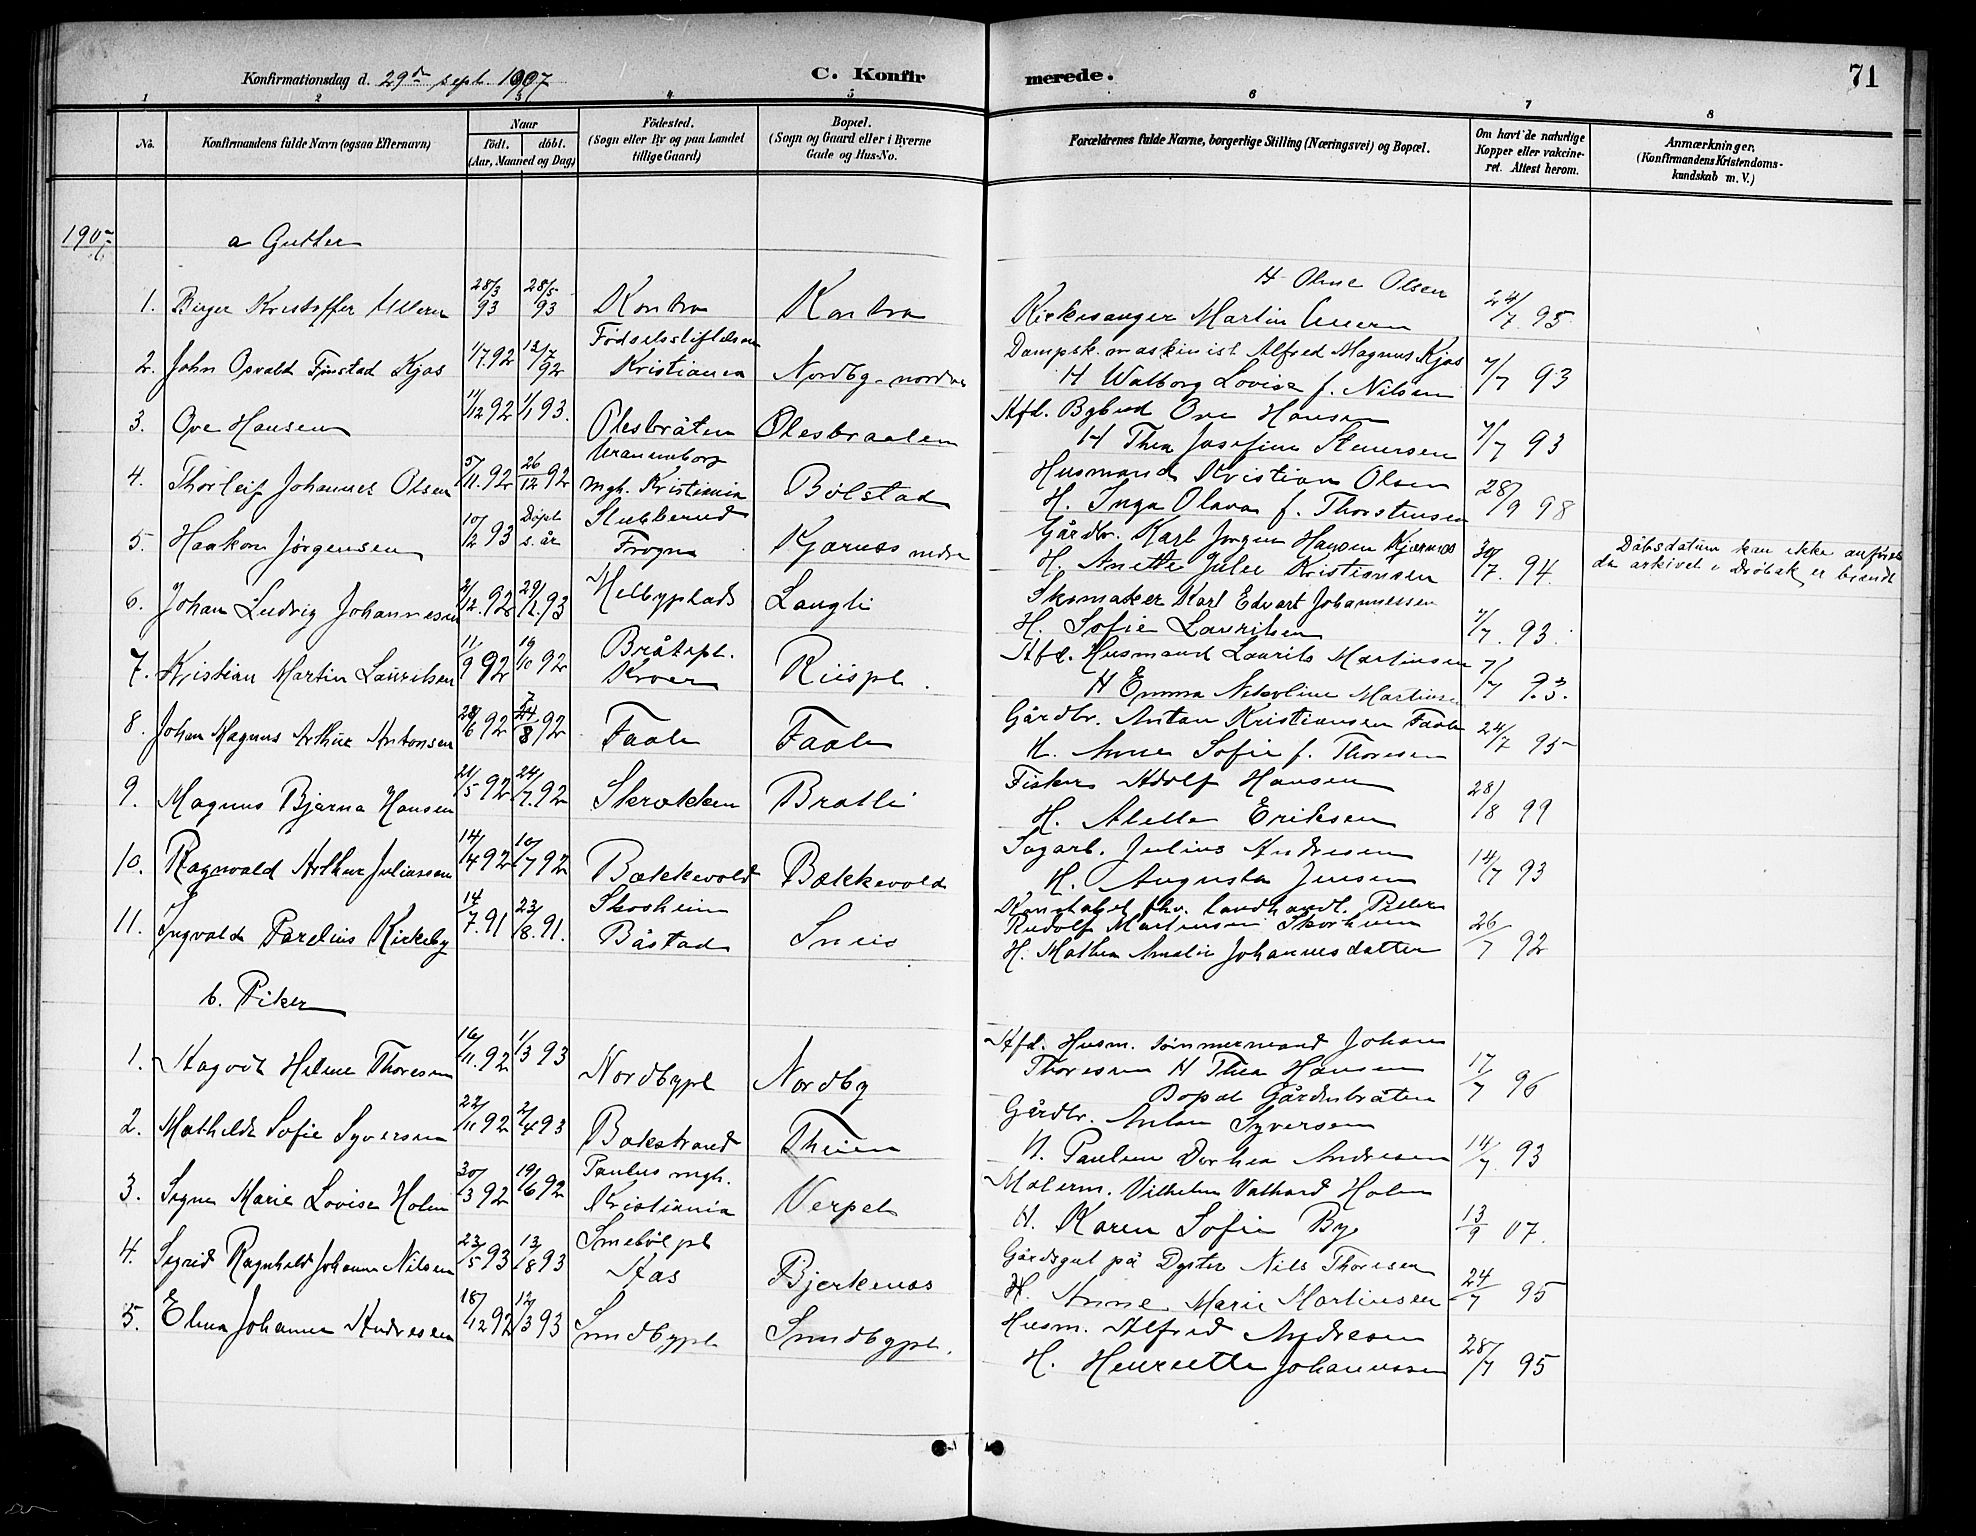 Konfirmationsdag d. 29de sept. 1907
C. Konfirmerede.
71
1 2 3 4 5 6 7 8
No.
Konfirmandens fulde Navn (ogsaa Efternavn)
Naar
født. døbt.
(Aar, Maaned og Dag)
Fødested.
(Sogn eller By og paa Landet
tillige Gaard)
Bopæl.
(Sogn og Gaard eller i Byerne
Gade og Hus-No.
Forældrenes fulde Navne, borgerlige Stilling (Næringsvei) og Bopæl.
Om havt de naturlige
Kopper eller vakcine-
ret. Attest herom.
Anmærkninger.
(Konfirmandens Kristendoms-
kundskab m. V.)
1907
a Gutter
1. Birger Kristoffer 28/3 93 28/5 93 Kontra Kontra Kirkesanger Martin H Oline Olsen 24/7 95
2. John Osvald Finstad Kjos 1/7 92 13/7 92 Fødselsstiftelsen Kristiania Nordby nordre Dampsk. maskinist Alfred Magnus Kjos
H Walborg Lovise f. Nilsen 7/7 93
3. Ove Hansen 11/12 92 1/1 93. Olesbråten Olesbraaten Afd. Bybud Ove Hansen
H Thea Josefine Stenersen 7/7 93
4. Thorleif Johannes Olsen 5/11 92 26/12 92 Uranienborg mgh. Kristiania Bölstad Husmand Kristian Olsen
H. Inga Olava f. Thorstensen 28/9 98
5. Haakon Jørgensen 10/2 93 Døpt s. år Stubberud Frogn Kjærnes nedre Gårdbr. Karl Jørgen Hansen Kjærnes
H. Anette Julie Kristiansen 30/7 94. Dåbsdatum kan ikke anføres
da arkivet i Drøbak er brændt
6. Johan Ludvig Johannesen 2/12 92 29/12 93 Melbyplads Langli Skomaker Karl Edvart Johannessen
H. Sofie Lauritsen 7/7 93.
7. Kristian Martin Lauritsen 11/9 92 19/10 92 Bråtepl. Kroer Riispl. Afd. Husmand Laurits Martinsen
H Emma Nikoline Martins. 7/7 93.
8. Johan Magnus Arthur Antonsen 28/6 92 7/8 92 Faale Faale Gårdbr. Anton Kristiansen Faale
H. Anne Sofie f. Thoresen 24/7 95
9. Magnus Bjarne Hansen 21/5 92 24/7 92 Skrækken Bratli Fisker Adolf Hansen
H. Alette Eriksen 28/8 99
10. Ragnvald Arthur Juliussen 14/4 92 10/7 92 Bækkevold Bækkevold Sagarb. Julius Andresen
H. Augusta Jensen 14/7 93
11. Ingvald Parelius Kirkeby 14/7 91 23/8 91. Skosheim Båstad Sneis Konstabel fhv. landhandl. Peder
Rudolf Martinsen Skorheim
H. Mathea Amalie Johannesdatter 26/7 92
b. Piker
1. Aagodt Helene Thoresen 16/11 92 1/3 93 Nordbypl Nordby Afd. Husm. tømmermand Johan
Thoresen H Thea Hansen
Bopæl Gårdenbråten 17/7 96
2. Mathilde Sofie Syversen 22/11 92 2/4 93 Bækstrand Theien Gårdbr. Anton Syversen
H. Pauline Dorthea Andresen 14/7 93
3. Signe Marie Lovise Holm 30/3 92 19/6 92 Paulus mgh. Kristiania Verpet Malerm. Vilhelm Valhard Holm
H. Karen Sofie By 13/9 07.
4. Sigrid Ragnhild Johanne Nilsen 23/5 93 13/8 93 Smebøl pl Aas Bjerkenes Gårdsgut på Dyster Nils Thoresen
H. Anne Marie Martinsen 24/7 95
5. Elma Johanne Andresen 18/12 92 12/3 93 Sundbypl Sundbypl. Husm. Alfred Andresen
H. Henriette Johannessen 28/7 95